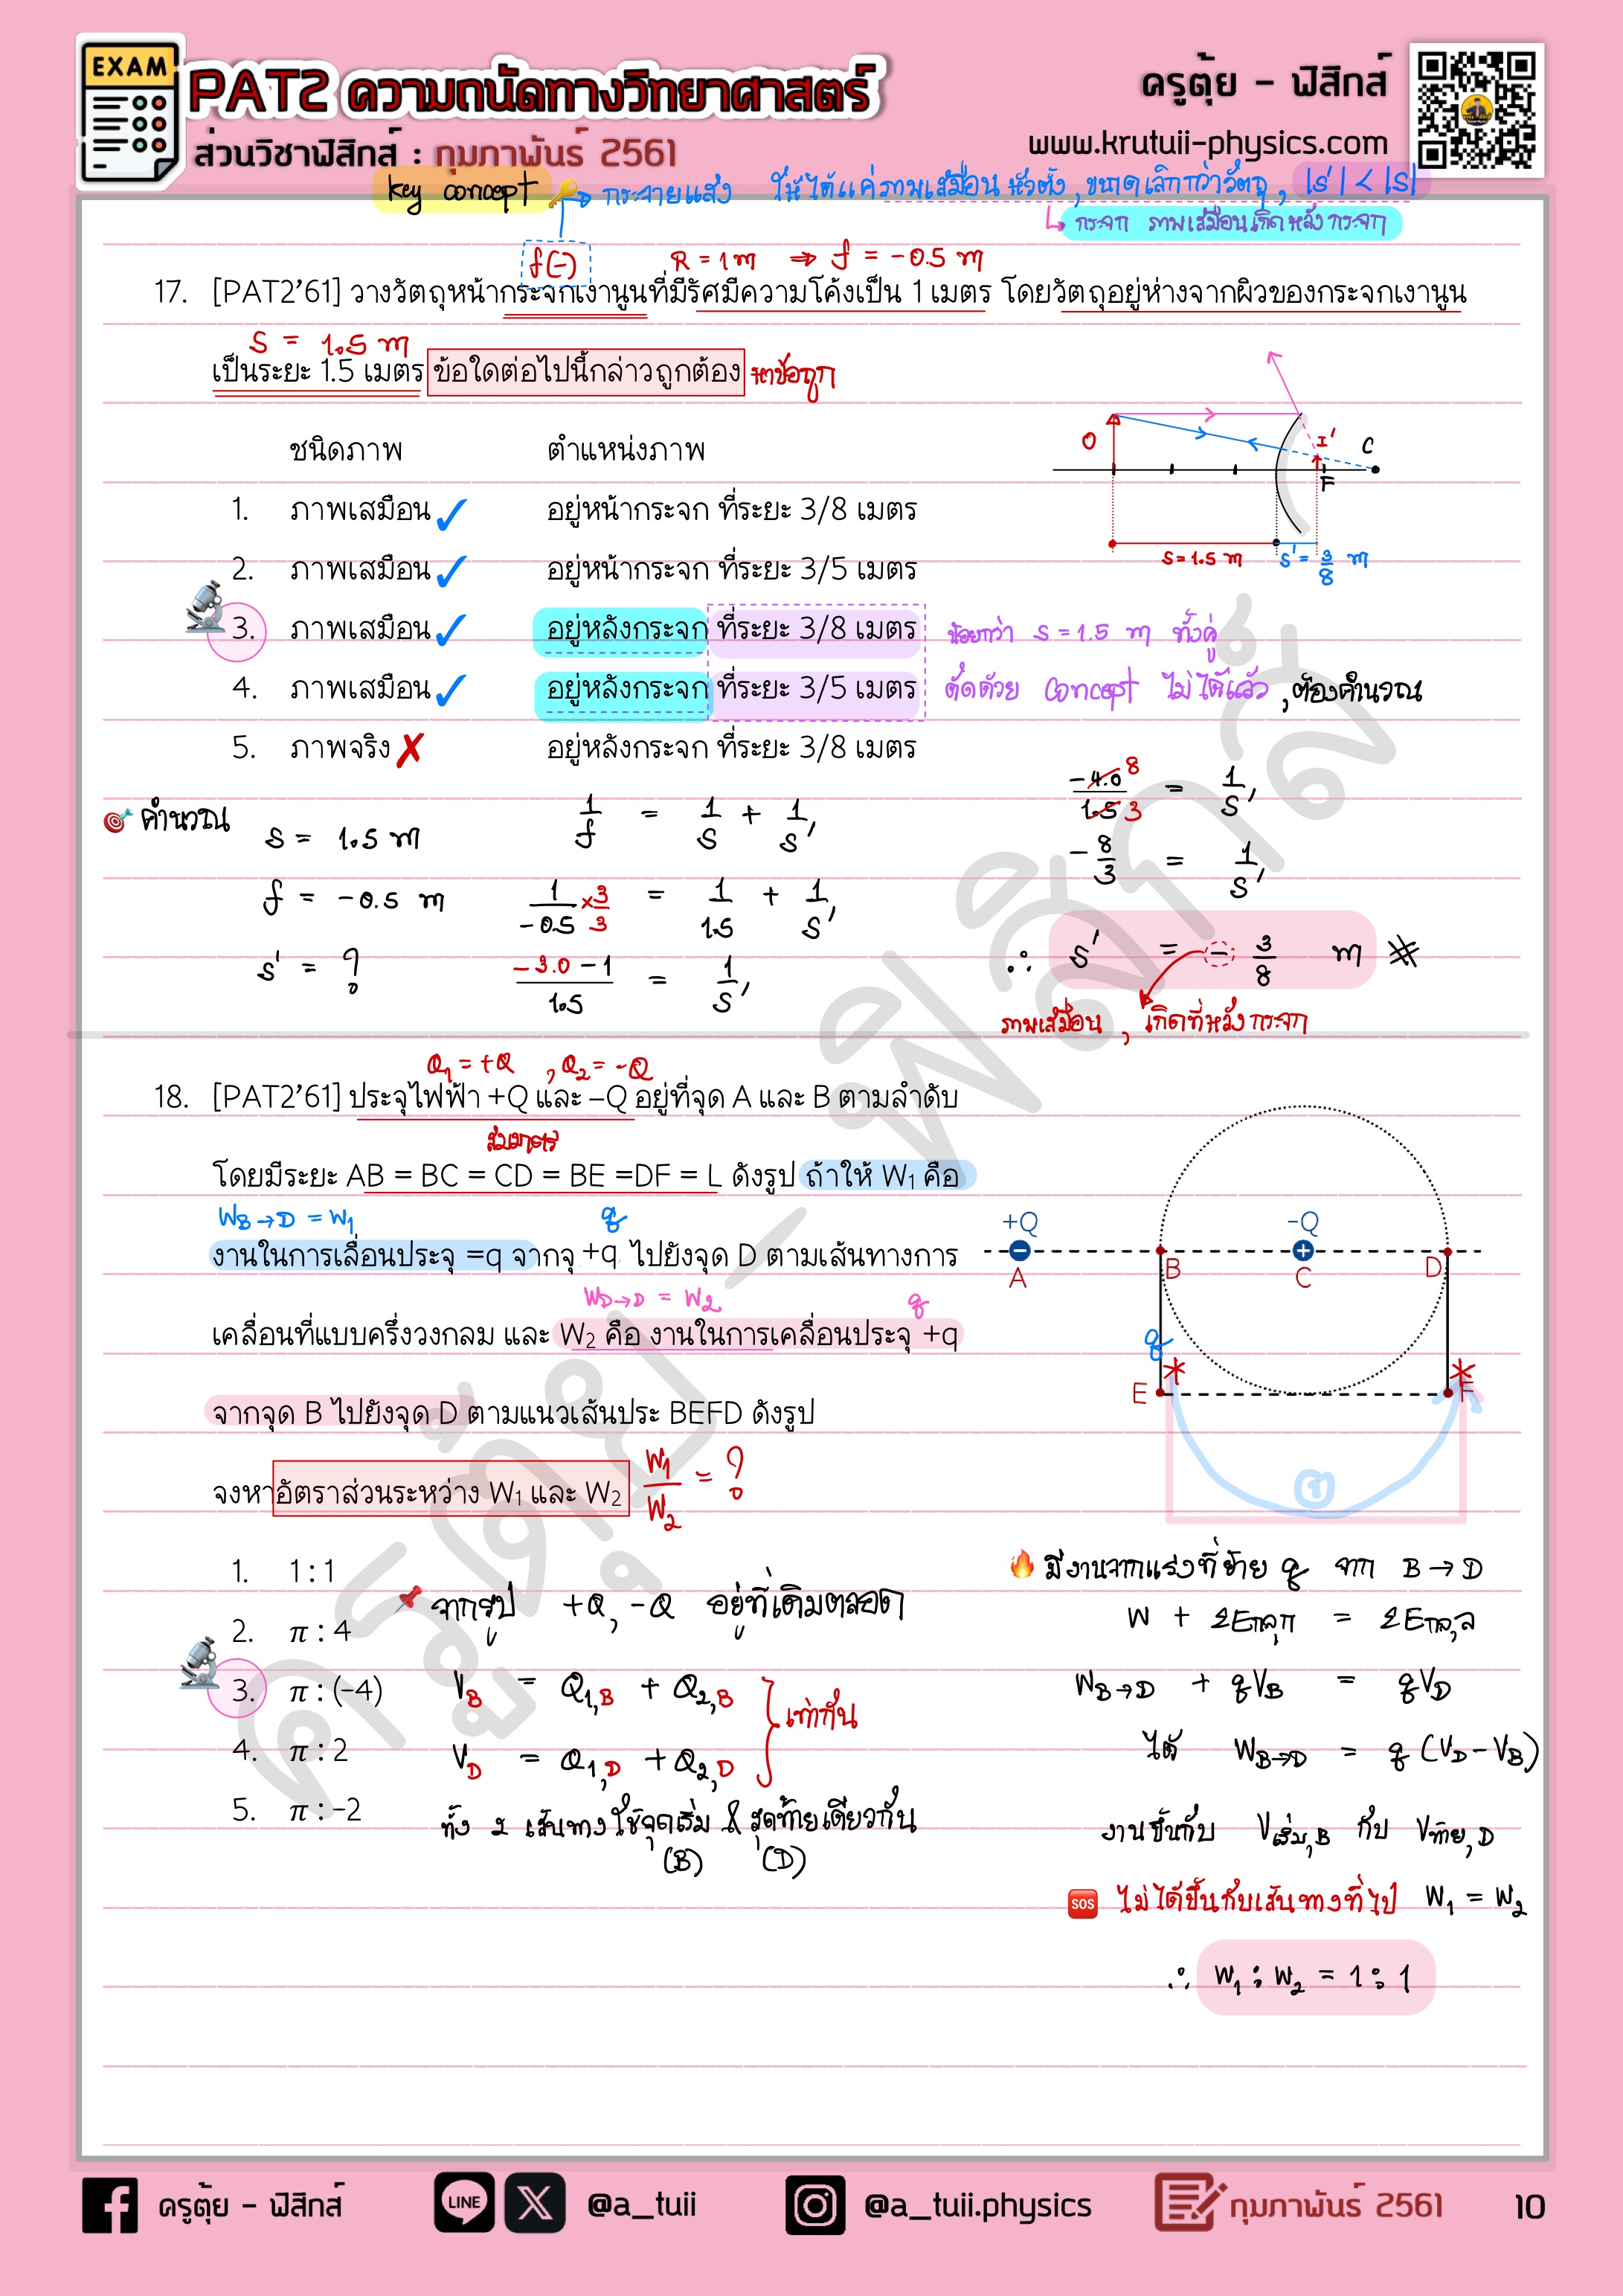 EXAM
PAT2 ความถนัดทางวิทยาศาสตร์
ส่วนวิชาฟิสิกส์ : กุมภาพันธ์ 2561
ครูตุ้ย - ฟิสิกส์
www.krutuii-physics.com
key concept กระจายแสง ให้ได้แค่ภาพเสมือน หัวตั้ง , ขนาดเล็กกว่าวัตถุ , |s'| < |s|
กระจก ภาพเสมือนเกิดหลังกระจก
f(-) R = 1 m ⇒ f = -0.5 m
17. [PAT2'61] วางวัตถุหน้ากระจกเงานูนที่มีรัศมีความโค้งเป็น 1 เมตร โดยวัตถุอยู่ห่างจากผิวของกระจกเงานูน
s = 1.5 m
เป็นระยะ 1.5 เมตร ข้อใดต่อไปนี้กล่าวถูกต้อง หาข้อถูก
ชนิดภาพ ตำแหน่งภาพ
1. ภาพเสมือน ✓ อยู่หน้ากระจก ที่ระยะ 3/8 เมตร
2. ภาพเสมือน ✓ อยู่หน้ากระจก ที่ระยะ 3/5 เมตร
3. ภาพเสมือน ✓ อยู่หลังกระจก ที่ระยะ 3/8 เมตร น้อยกว่า s = 1.5 m ทั้งคู่
4. ภาพเสมือน ✓ อยู่หลังกระจก ที่ระยะ 3/5 เมตร ตัดด้วย concept ไม่ได้แล้ว , ต้องคำนวณ
5. ภาพจริง ✗ อยู่หลังกระจก ที่ระยะ 3/8 เมตร
O I' C
F
s = 1.5 m s' = 3/8 m
คำนวณ
s = 1.5 m
f = -0.5 m
s' = ?
1/f = 1/s + 1/s'
1/-0.5 × 3/3 = 1/1.5 + 1/s'
-3.0 - 1/1.5 = 1/s'
-4.0 8/1.5 3 = 1/s'
-8/3 = 1/s'
∴ s' = - 3/8 m #
ภาพเสมือน , เกิดที่หลังกระจก
Q₁ = +Q , Q₂ = -Q
18. [PAT2'61] ประจุไฟฟ้า +Q และ –Q อยู่ที่จุด A และ B ตามลำดับ
โดยมีระยะ AB = BC = CD = BE =DF = L ดังรูป ถ้าให้ W₁ คือ
W B→D = W₁ q
งานในการเลื่อนประจุ =q จากจุ +q ไปยังจุด D ตามเส้นทางการ
W D→D = W₂ q
เคลื่อนที่แบบครึ่งวงกลม และ W₂ คือ งานในการเคลื่อนประจุ +q
จากจุด B ไปยังจุด D ตามแนวเส้นประ BEFD ดังรูป
จงหาอัตราส่วนระหว่าง W₁ และ W₂ W₁/W₂ = ?
+Q -Q
A B C D
q
E F
1. 1 : 1
2. π : 4
3. π : (-4)
4. π : 2
5. π : -2
จากรูป +Q, -Q อยู่ที่เดิมตลอด
V B = Q₁,B + Q₂,B
V D = Q₁,D + Q₂,D
เท่ากัน
ทั้ง 2 เส้นทางใช้จุดเริ่ม & สุดท้ายเดียวกัน
(B) (D)
มีงานจากแรงที่ย้าย q จาก B → D
W B→D + qV B = qV D
ได้ W B→D = q (V D - V B)
งานขึ้นกับ V เริ่ม,B กับ V ท้าย,D
SOS ไม่ได้ขึ้นกับเส้นทางที่ไป W₁ = W₂
∴ W₁ : W₂ = 1 : 1
ครูตุ้ย - ฟิสิกส์
ครูตุ้ย - ฟิสิกส์
LINE X @a_tuii
@a_tuii.physics
กุมภาพันธ์ 2561
10